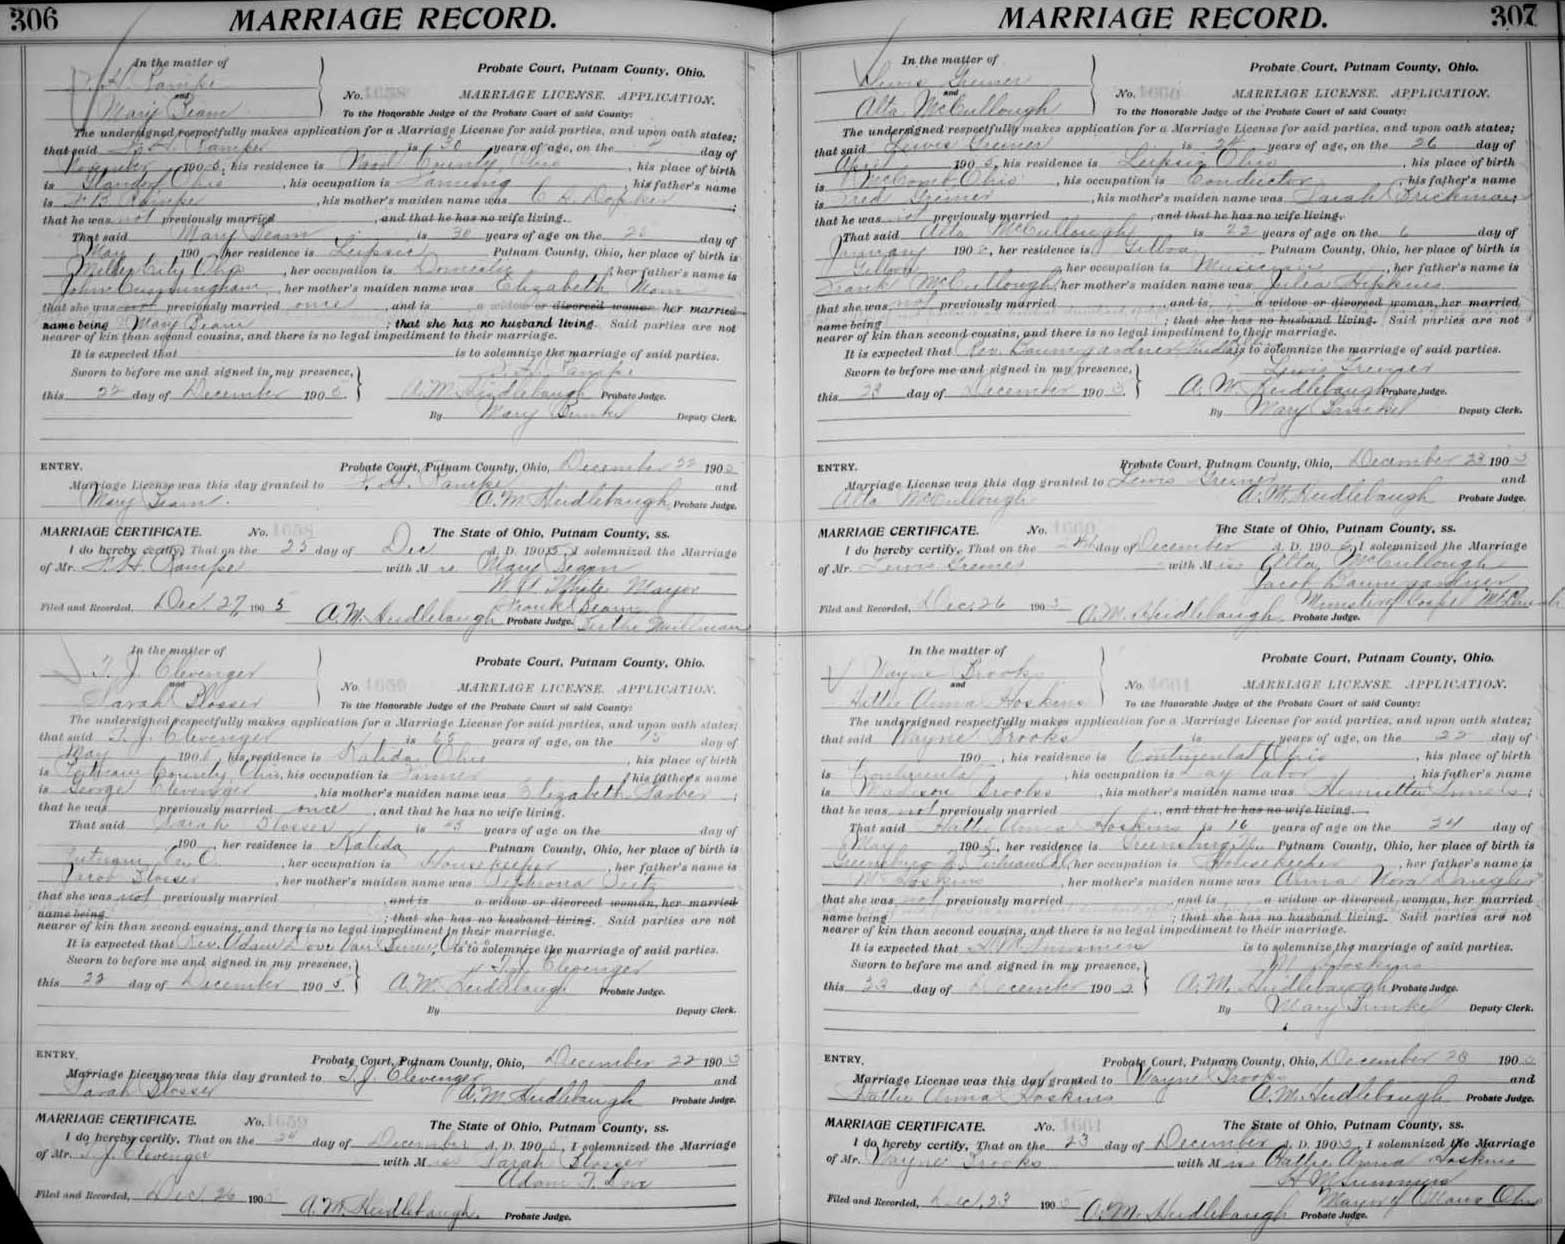 306
MARRIAGE RECORD.
In the matter of
F. H. Rampe
and
Mary Beam
Probate Court, Putnam County, Ohio.
No. 4658 MARRIAGE LICENSE. APPLICATION.
To the Honorable Judge of the Probate Court of said County:
The undersigned respectfully makes application for a Marriage License for said parties, and upon oath states;
that said is 30 years of age, on the day of
November 1905, his residence is Wood County, Ohio, his place of birth
is Glandorf Ohio, his occupation is Farming, his father's name
is, his mother's maiden name was;
that he was not previously married, and that he has no wife living.
That said Mary Beam is 30 years of age on the day of
May 190, her residence is Leipsic Putnam County, Ohio, her place of birth is
Miller City Ohio, her occupation is Domestic, her father's name is
John Cunningham, her mother's maiden name was Elizabeth
that she was not previously married once, and is a widow or divorced woman, her married
name being Mary Beam; that she has no husband living. Said parties are not
nearer of kin than second cousins, and there is no legal impediment to their marriage.
It is expected that is to solemnize the marriage of said parties.
Sworn to before me and signed in my presence,
this 22 day of December 1905. A. M. Heidlebaugh Probate Judge.
By Mary Deputy Clerk.
ENTRY. Probate Court, Putnam County, Ohio, December 22 1905
Marriage License was this day granted to F. H. Rampe and
Mary Beam. A. M. Heidlebaugh, Probate Judge.
MARRIAGE CERTIFICATE. No. 4658 The State of Ohio, Putnam County, ss.
I do hereby certify, That on the 25 day of Dec A. D. 1905, I solemnized the Marriage
of Mr. F. H. Rampe with Mrs. Mary Beam
White Mayor
Frank Beam
Filed and Recorded, Dec. 27, 1905 A. M. Heidlebaugh Probate Judge.
In the matter of
T. J. Clevenger
and
Sarah Blosser
Probate Court, Putnam County, Ohio.
No. 4659 MARRIAGE LICENSE. APPLICATION.
To the Honorable Judge of the Probate Court of said County:
The undersigned respectfully makes application for a Marriage License for said parties, and upon oath states;
that said T. J. Clevenger is years of age, on the day of
May 190, his residence is Kalida Ohio, his place of birth
is Putnam County, Ohio, his occupation is Farmer, his father's name
is George Clevenger, his mother's maiden name was Elizabeth;
that he was previously married once, and that he has no wife living.
That said Sarah Blosser is years of age on the day of
190, her residence is Kalida Putnam County, Ohio, her place of birth is
Putnam Co. O., her occupation is Housekeeper, her father's name is
Jacob Blosser, her mother's maiden name was
that she was not previously married and is a widow or divorced woman, her married
name being; that she has no husband living. Said parties are not
nearer of kin than second cousins, and there is no legal impediment to their marriage.
It is expected that Rev. Adam Dove is to solemnize the marriage of said parties.
Sworn to before me and signed in my presence, T. J. Clevenger
this 22 day of December 1905. A. M. Heidlebaugh Probate Judge.
By Deputy Clerk.
ENTRY. Probate Court, Putnam County, Ohio, December 22 1905
Marriage License was this day granted to T. J. Clevenger and
Sarah Blosser A. M. Heidlebaugh Probate Judge.
MARRIAGE CERTIFICATE. No. 4659 The State of Ohio, Putnam County, ss.
I do hereby certify, That on the day of December A. D. 190, I solemnized the Marriage
of Mr. T. J. Clevenger with Miss Sarah Blosser
Adam F. Dove
Filed and Recorded, Dec. 26 190 A. M. Heidlebaugh. Probate Judge.
307
MARRIAGE RECORD.
In the matter of
Lewis Greiner
and
Alta McCullough
Probate Court, Putnam County, Ohio.
No. 4660 MARRIAGE LICENSE. APPLICATION.
To the Honorable Judge of the Probate Court of said County:
The undersigned respectfully makes application for a Marriage License for said parties, and upon oath states;
that said Lewis Greiner is 24 years of age, on the 26 day of
April 1905, his residence is Leipsic Ohio, his place of birth
is McComb, Ohio, his occupation is Conductor, his father's name
is Fred Greiner, his mother's maiden name was Sarah;
that he was not previously married, and that he has no wife living.
That said Alta McCullough is 22 years of age on the 6 day of
January 190, her residence is Gilboa Putnam County, Ohio, her place of birth is
Gilboa, her occupation is Musician, her father's name is
Frank McCullough, her mother's maiden name was Julia
that she was not previously married, and is a widow or divorced woman, her married
name being; that she has no husband living. Said parties are not
nearer of kin than second cousins, and there is no legal impediment to their marriage.
It is expected that Rev. Baumgardner is to solemnize the marriage of said parties.
Sworn to before me and signed in my presence, Lewis Greiner
this 23 day of December 1905. A. M. Heidlebaugh Probate Judge.
By Mary Deputy Clerk.
ENTRY. Probate Court, Putnam County, Ohio, December 23 1905
Marriage License was this day granted to Lewis Greiner and
Alta McCullough A. M. Heidlebaugh Probate Judge.
MARRIAGE CERTIFICATE. No. 4660 The State of Ohio, Putnam County, ss.
I do hereby certify, That on the 24 day of December A. D. 190, I solemnized the Marriage
of Mr. Lewis Greiner with Miss Alta McCullough
Jacob Baumgardner
Minister of Gospel
Filed and Recorded, Dec. 26 1905 A. M. Heidlebaugh, Probate Judge.
In the matter of
Wayne Brooks
and
Hattie Anna Hoskins
Probate Court, Putnam County, Ohio.
No. 4661 MARRIAGE LICENSE. APPLICATION.
To the Honorable Judge of the Probate Court of said County:
The undersigned respectfully makes application for a Marriage License for said parties, and upon oath states;
that said Wayne Brooks is years of age, on the 22 day of
190, his residence is Continental Ohio, his place of birth
is Continental, his occupation is Day labor, his father's name
is Madison Brooks, his mother's maiden name was Henrietta;
that he was not previously married, and that he has no wife living.
That said Hattie Anna Hoskins is 16 years of age on the 24 day of
May 1905, her residence is Greensburg Tp. Putnam County, Ohio, her place of birth is
Greensburg, her occupation is Housekeeper, her father's name is
M. Hoskins, her mother's maiden name was Anna Nora
that she was not previously married, and is a widow or divorced woman, her married
name being; that she has no husband living. Said parties are not
nearer of kin than second cousins, and there is no legal impediment to their marriage.
It is expected that is to solemnize the marriage of said parties.
Sworn to before me and signed in my presence, M. Hoskins
this 23 day of December 1905 A. M. Heidlebaugh Probate Judge.
By Mary Deputy Clerk.
ENTRY. Probate Court, Putnam County, Ohio, December 23 1905
Marriage License was this day granted to Wayne Brooks and
Hattie Anna Hoskins A. M. Heidlebaugh Probate Judge.
MARRIAGE CERTIFICATE. No. 4661 The State of Ohio, Putnam County, ss.
I do hereby certify, That on the 23 day of December A. D. 1905, I solemnized the Marriage
of Mr. Wayne Brooks with Miss Hattie Anna Hoskins
Mayor of Ottawa Ohio
Filed and Recorded, Dec. 23 1905 A. M. Heidlebaugh Probate Judge.